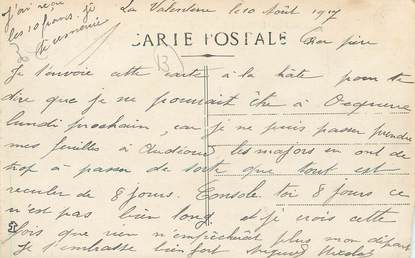 j'ai reçu
les 10 francs. je
te remercie
La Valentine le 10 Août 1917
CARTE POSTALE
Cher père
13
Je t'envoie cette carte à la hâte pour te
dire que je ne pourrait être à
lundi prochain, car je ne puis passer prendre
mes feuilles à les majors en ont de
trop à passer de sorte que tout est
reculer de 8 jours. Console toi 8 jours ce
n'est pas bien long et je crois cette
fois que rien n'empêchera plus mon départ
Je t'embrasse bien fort